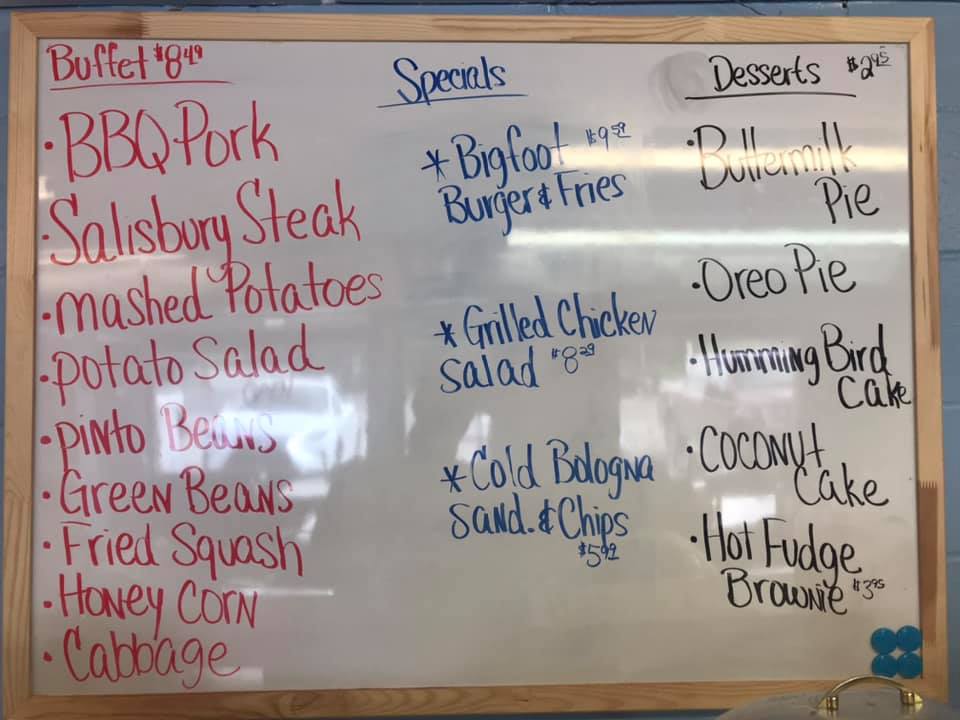 Buffet $8.49
• BBQ Pork
• Salisbury Steak
• mashed Potatoes
• potato Salad
• pinto Beans
• Green Beans
• Fried Squash
• Honey Corn
• Cabbage
Specials
* Bigfoot $9.59
Burger & Fries
* Grilled Chicken
Salad $8.29
* Cold Bologna
Sand. & Chips
$5.99
Desserts $2.95
• Buttermilk
Pie
• Oreo Pie
• Humming Bird
Cake
• Coconut
Cake
• Hot Fudge
Brownie $3.95